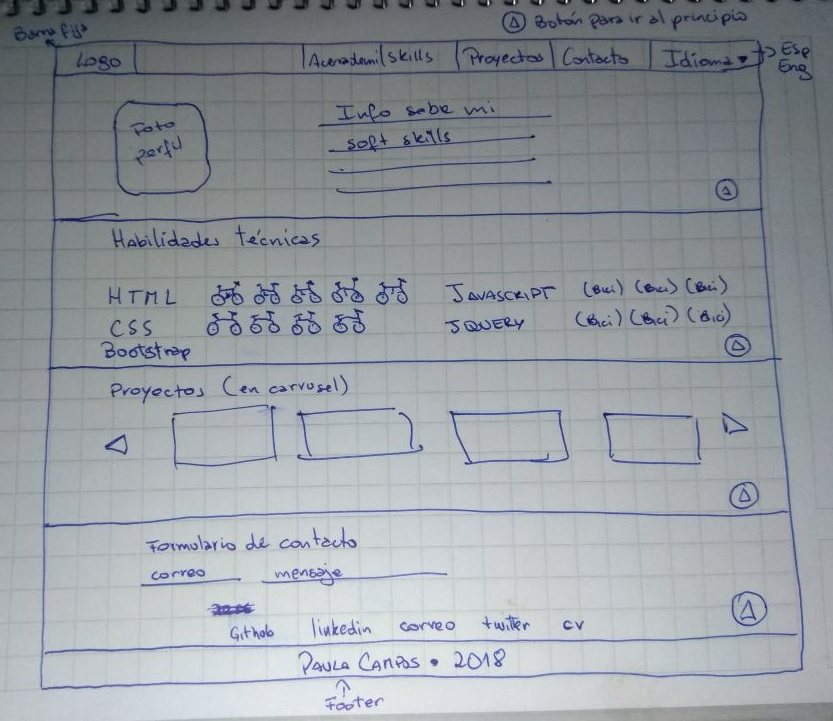 Botón para ir al principio
Barra fija
Logo Acercademi Skills Proyectos Contacto Idioma
Esp
Eng
Foto
perfil
Info sobe mi
soft skills
Habilidades técnicas
HTML JAVASCRIPT (Bici) (Bici) (Bici)
CSS JQUERY (Bici) (Bici) (Bici)
Bootstrap
Proyectos (en carrusel)
Formulario de contacto
correo mensaje
Github linkedin correo twiter cv
PAULA CAMPOS • 2018
Footer